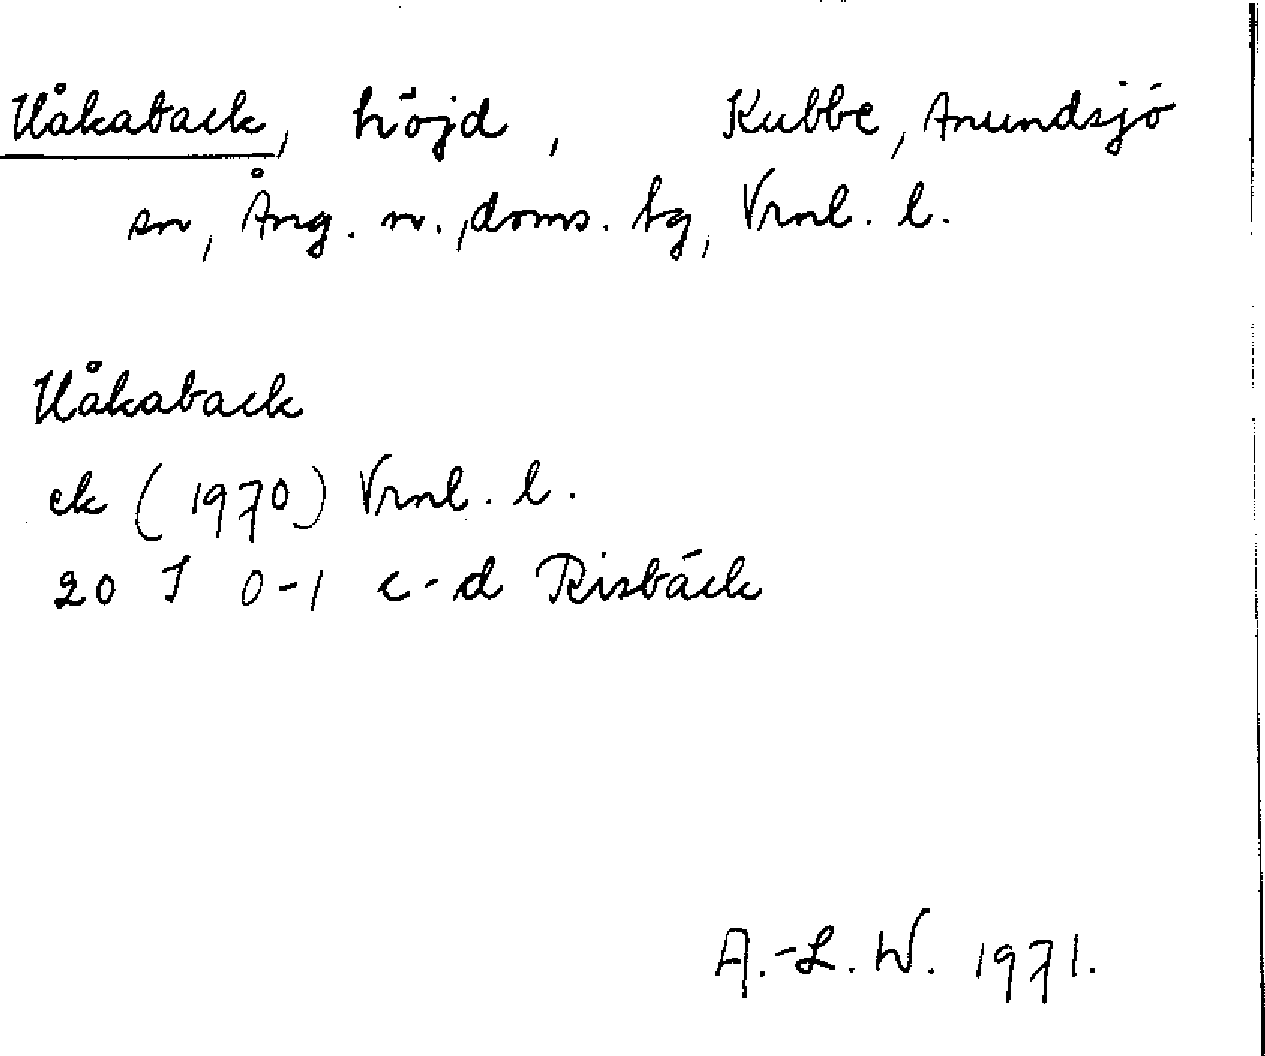 Håkaback, höjd, Kubbe, Anundsjö
sn, Ång. n., doms. tg, Vrnl. l.
Håkaback
ek (1970) Vrnl. l.
20 I 0-1 c-d Risbäck
A.-L. W. 1971.